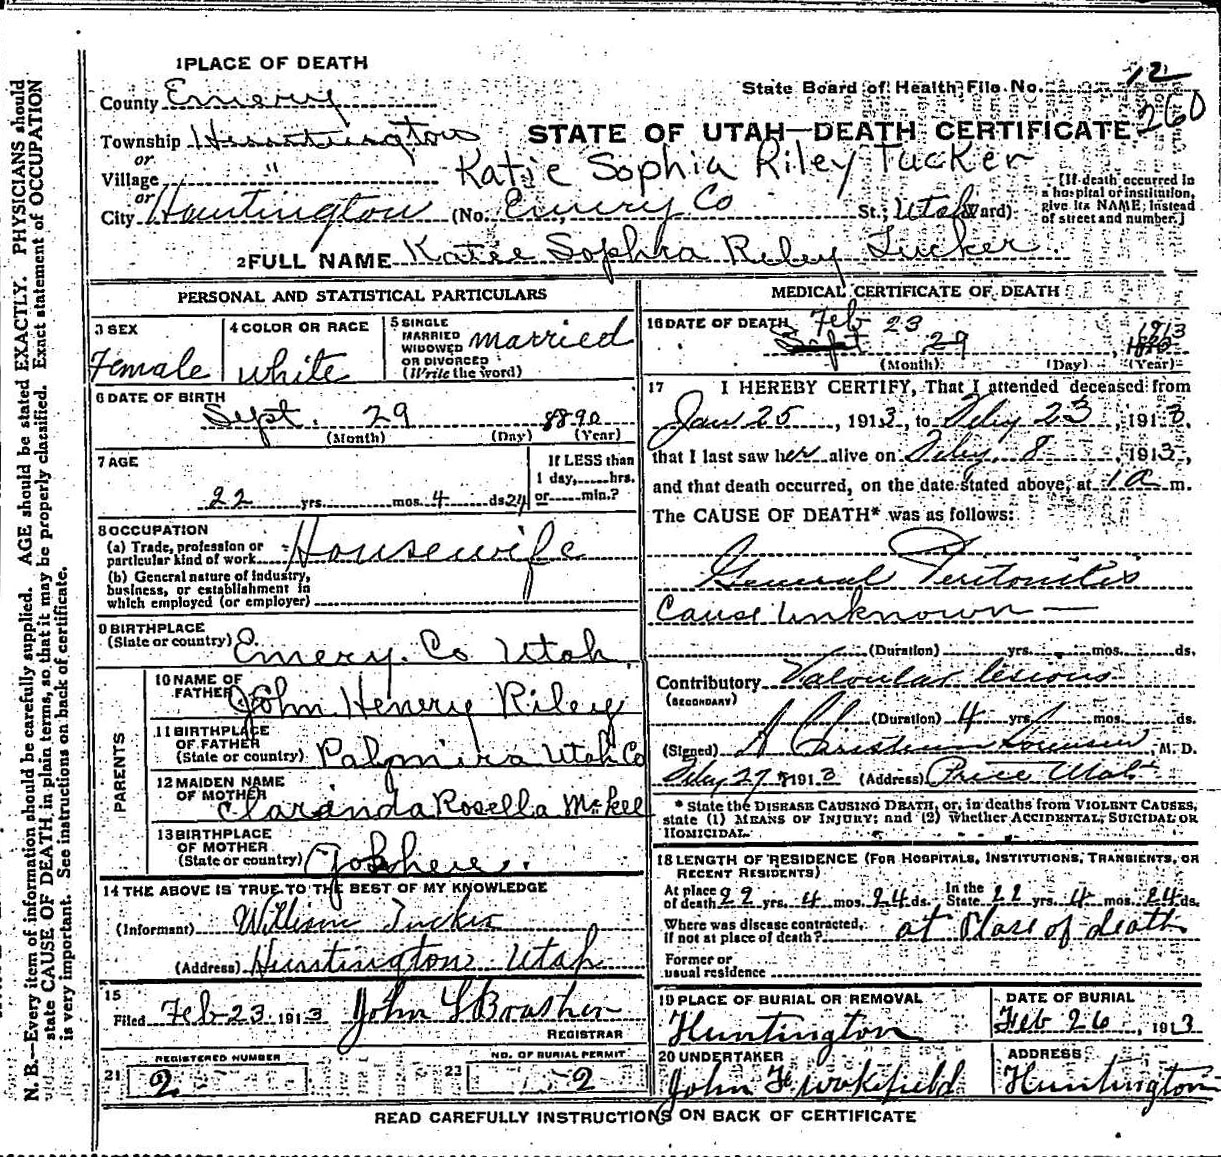 1 PLACE OF DEATH
County Emery
State Board of Health File No. 12
260
Township Hunntington
STATE OF UTAH—DEATH CERTIFICATE
or
Village "
Katie Sophia Riley Tucker
or
City Huntington (No. Emery Co St.; Utah Ward)
[If death occurred in
a hospital or institution,
give its NAME, instead
of street and number.]
2 FULL NAME Katie Sophia Riley Tucker
PERSONAL AND STATISTICAL PARTICULARS
3 SEX
Female
4 COLOR OR RACE
White
5 SINGLE
MARRIED
WIDOWED
OR DIVORCED
(Write the word)
married
6 DATE OF BIRTH
Sept. 29 1890
(Month) (Day) (Year)
7 AGE
22 yrs. mos. 4 ds. 24
If LESS than
1 day,.....hrs.
or.....min.?
8 OCCUPATION
(a) Trade, profession or
particular kind of work Housewife
(b) General nature of industry,
business, or establishment in
which employed (or employer)
9 BIRTHPLACE
(State or country) Emery. Co Utah
PARENTS
10 NAME OF
FATHER John Henery Riley
11 BIRTHPLACE
OF FATHER
(State or country) Palpmira Utah Co
12 MAIDEN NAME
OF MOTHER Claranda Rosella McKee
13 BIRTHPLACE
OF MOTHER
(State or country)
14 THE ABOVE IS TRUE TO THE BEST OF MY KNOWLEDGE
(Informant) William Tucker
(Address) Hunstington Utah
15
Filed Feb 23 1913 John L Brasher
REGISTRAR
REGISTERED NUMBER
21 2
NO. OF BURIAL PERMIT
23 2
MEDICAL CERTIFICATE OF DEATH
16 DATE OF DEATH Feb 23
Sept 29 1913
(Month) (Day) (Year)
17 I HEREBY CERTIFY, That I attended deceased from
Jan 25, 1913, to Feby 23, 1913,
that I last saw her alive on Feby. 8, 1913,
and that death occurred, on the date stated above, at 1 a m.
The CAUSE OF DEATH* was as follows:
General Peritonitis
Cause Unknown —
(Duration) yrs. mos. ds.
Contributory Valvular lesions
(SECONDARY)
(Duration) 4 yrs. mos. ds.
(Signed) A Christian Sorensen, M. D.
Feby 27, 1913 (Address) Price Utah
* State the DISEASE CAUSING DEATH, or, in deaths from VIOLENT CAUSES,
state (1) MEANS OF INJURY; and (2) whether ACCIDENTAL, SUICIDAL OR
HOMICIDAL.
18 LENGTH OF RESIDENCE (FOR HOSPITALS, INSTITUTIONS, TRANSIENTS, OR
RECENT RESIDENTS)
At place
of death 22 yrs. 4 mos. 24 ds.
In the
State 22 yrs. 4 mos. 24 ds.
Where was disease contracted,
if not at place of death? at Place of death
Former or
usual residence
19 PLACE OF BURIAL OR REMOVAL
Huntington
DATE OF BURIAL
Feb 26, 1913
20 UNDERTAKER
John F Wakefield
ADDRESS
Huntington
READ CAREFULLY INSTRUCTIONS ON BACK OF CERTIFICATE
N. B.—Every item of information should be carefully supplied. AGE should be stated EXACTLY. PHYSICIANS should
state CAUSE OF DEATH in plain terms, so that it may be properly classified. Exact statement of OCCUPATION
is very important. See instructions on back of certificate.